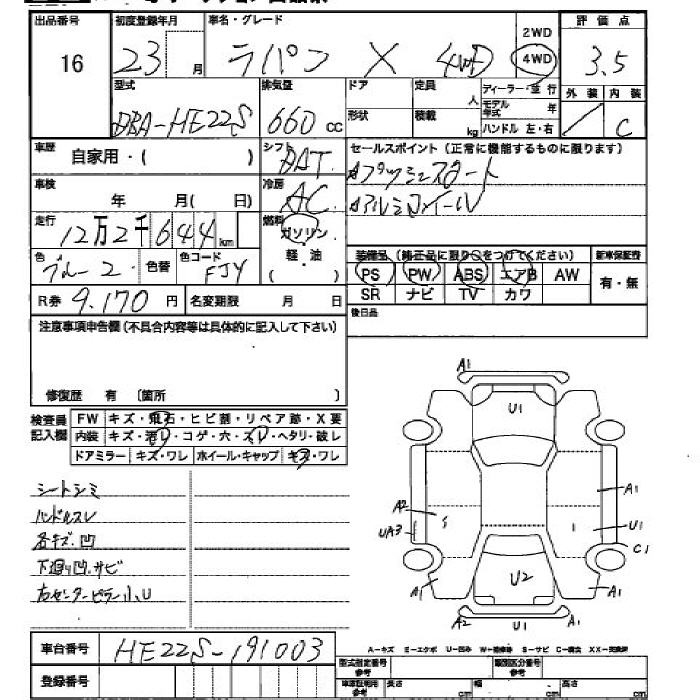 出品番号 初度登録年月 車名・グレード 2WD 評価点
16 23 月 ラパン X 4WD 4WD 3.5
型式 排気量 ドア 定員 ディーラー・並行 外装 内装
DBA-HE22S 660 cc 人 モデル年式 年 / C
形状 積載 kg ハンドル 左・右
車歴 自家用・( ) シフト DAT セールスポイント(正常に機能するものに限ります)
車検 年 月( 日) 冷房 AC
アルミホイール
走行 12万2千644km 燃料 ガソリン
軽・油
( )
色 ブルー2 色替 色コード FJY
装備品(純正品に限り○をつけてください) 新車保証書
PS PW ABS エアB AW 有・無
SR ナビ TV カワ
R券 9,170円 名変期限 月 日
後日品
注意事項申告欄(不具合内容等は具体的に記入して下さい)
修復歴 有 [箇所 ]
検査員記入欄
FW キズ・飛石・ヒビ割・リペア跡・X要
内装 キズ・汚レ・コゲ・穴・スレ・ヘタリ・破レ
ドアミラー キズ・ワレ ホイール・キャップ キズ・ワレ
シートシミ
ハンドルスレ
各キズ.凹
下廻り凹.サビ
右センターピラー小U
A1
U1
A1
A2
UA3
S
U1
C1
U2
A1
A1
A2 U1 A1
車台番号 HE22S-191003
登録番号
型式指定番号 参考 類別区分番号 参考
長さ cm 幅 cm 高さ cm